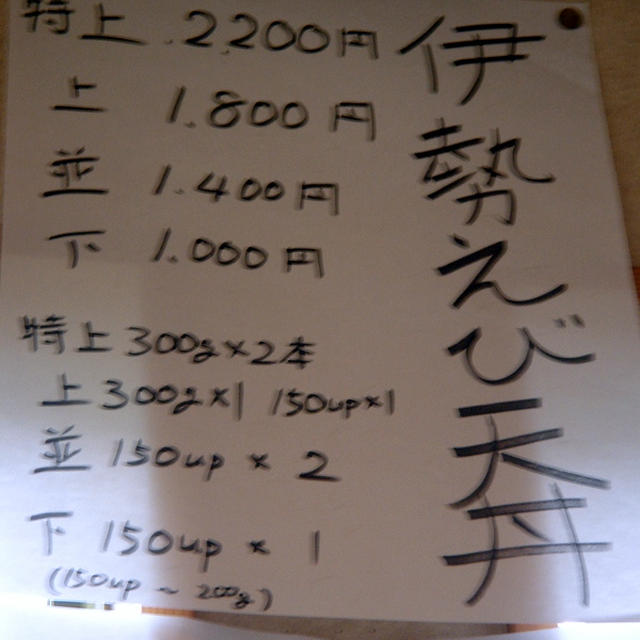 伊勢えび天丼
特上 2.200円
上 1.800円
並 1.400円
下 1.000円
特上 300g×2本
上 300g×1 150up×1
並 150up × 2
下 150up × 1
(150up ~ 200g)